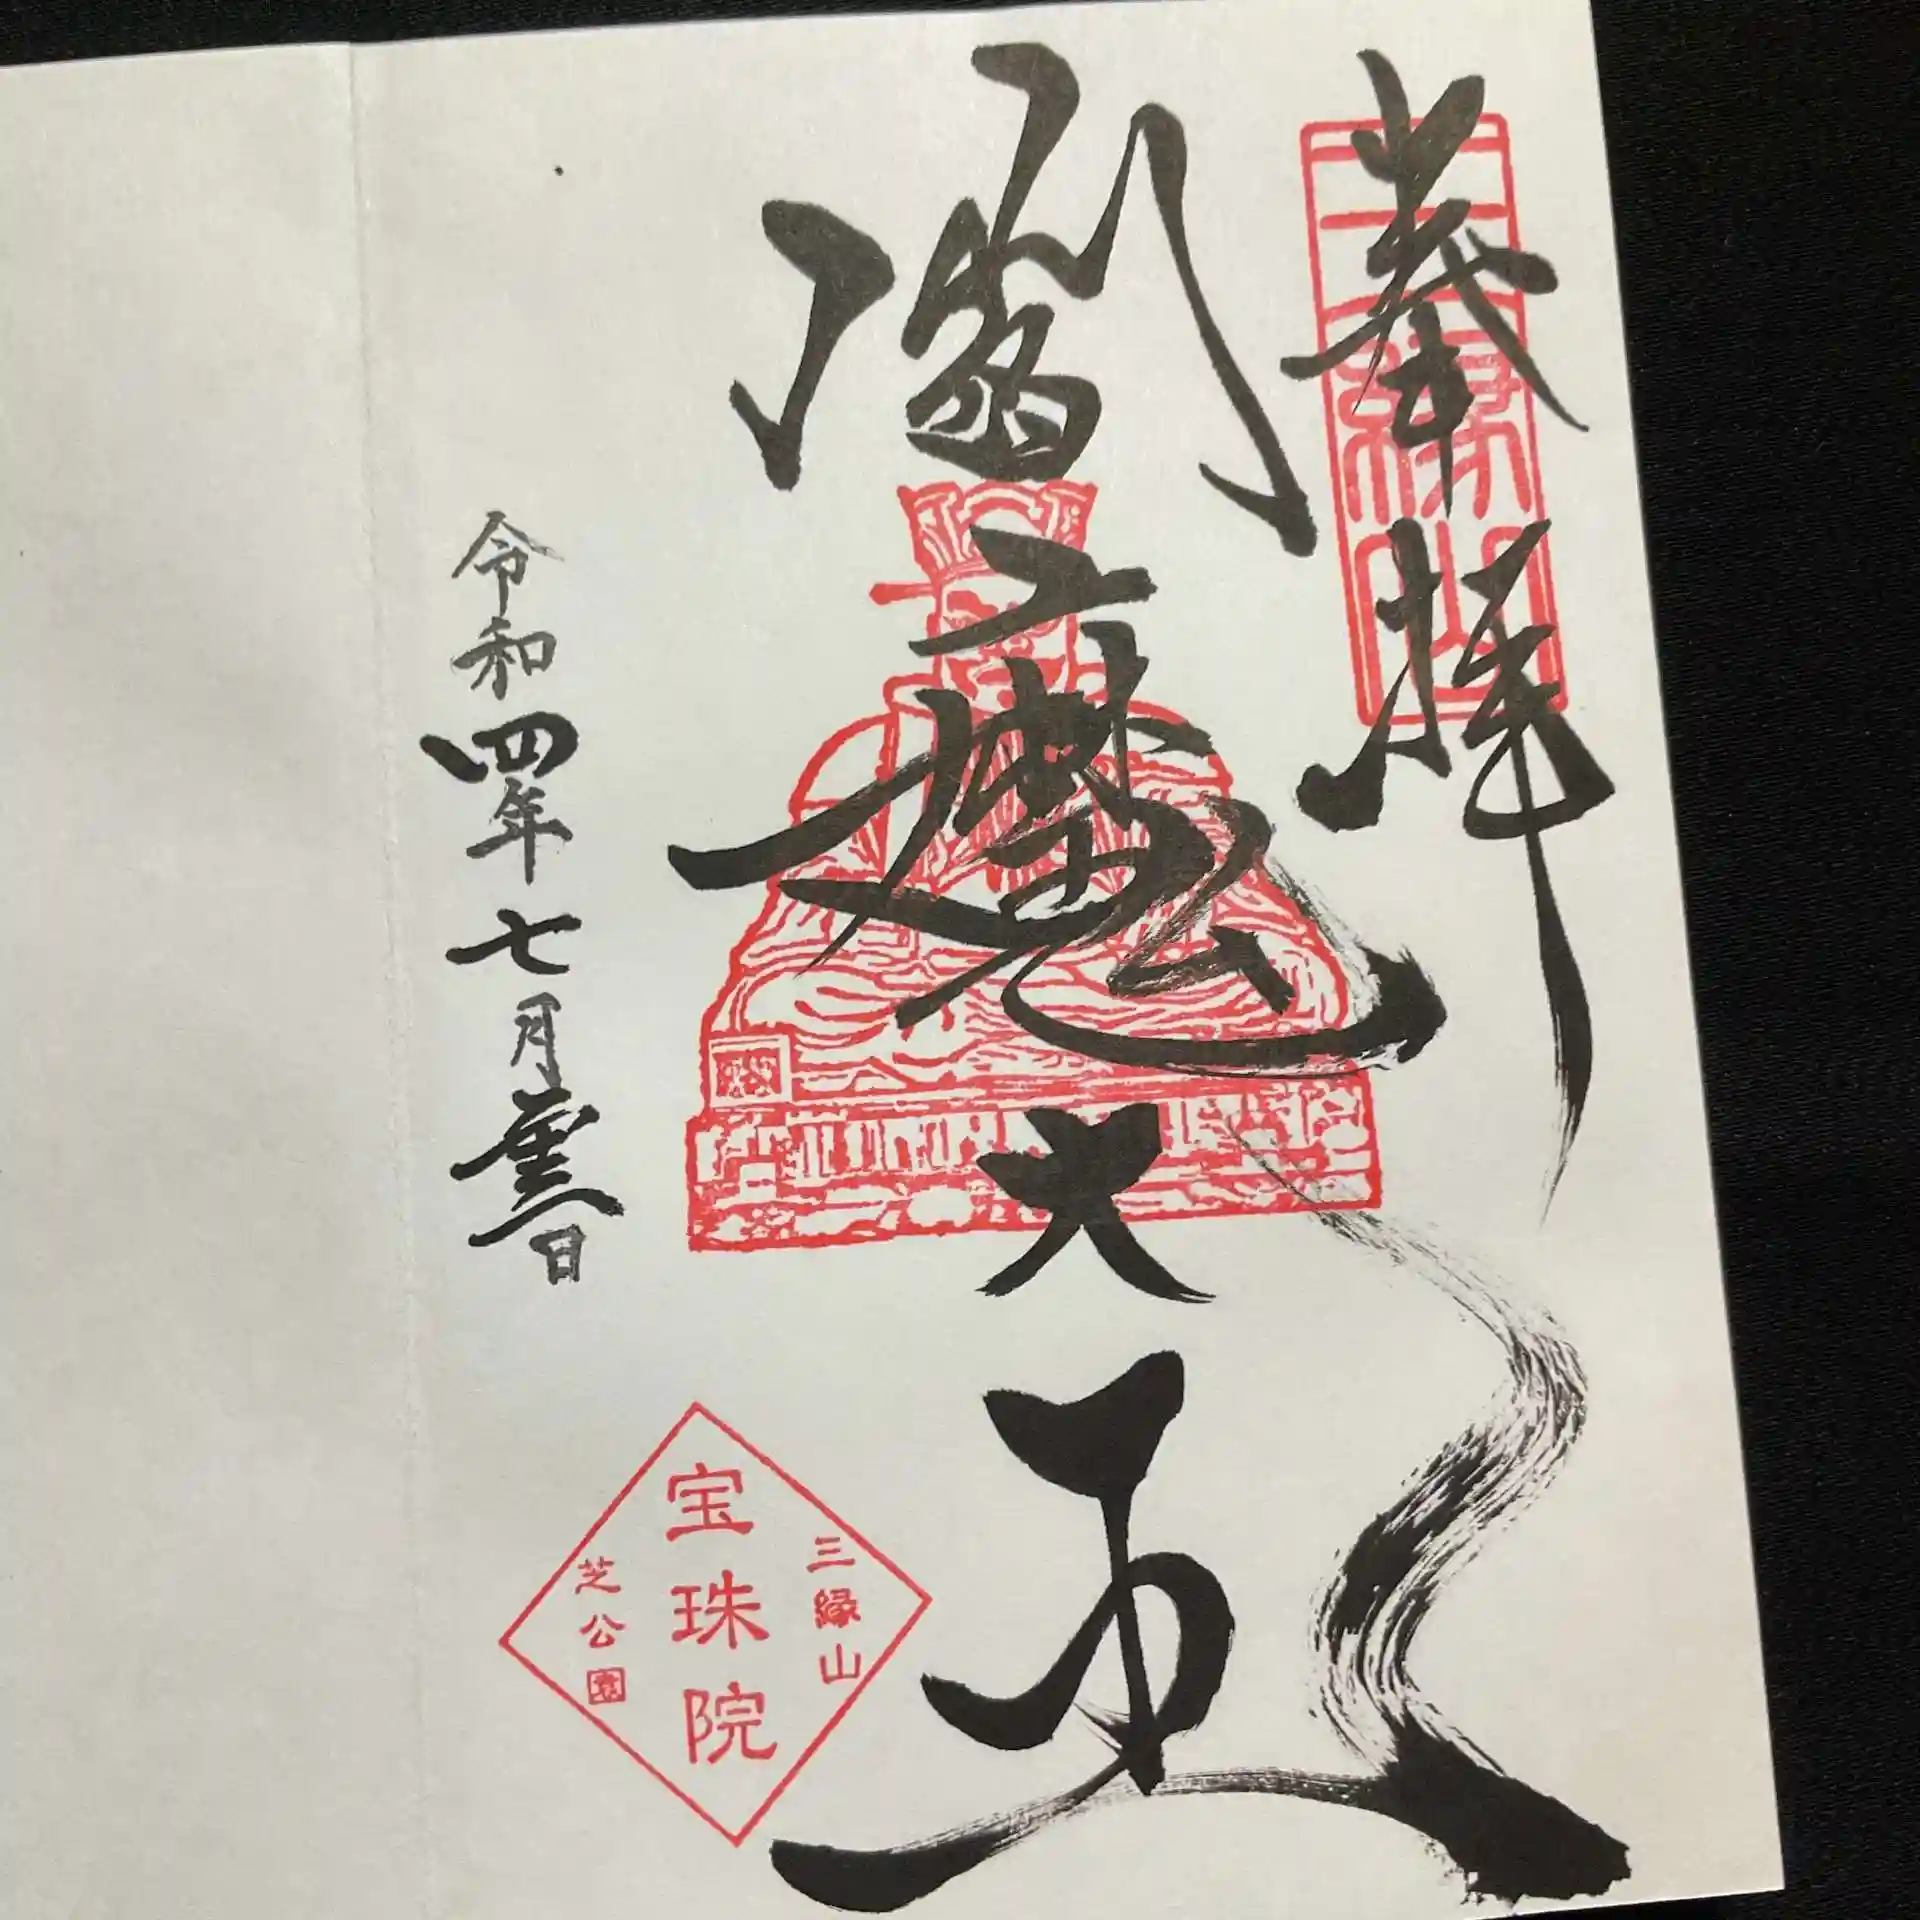 奉拝
三縁山
閻魔大王
令和四年七月 日
三縁山
宝珠院
芝公園